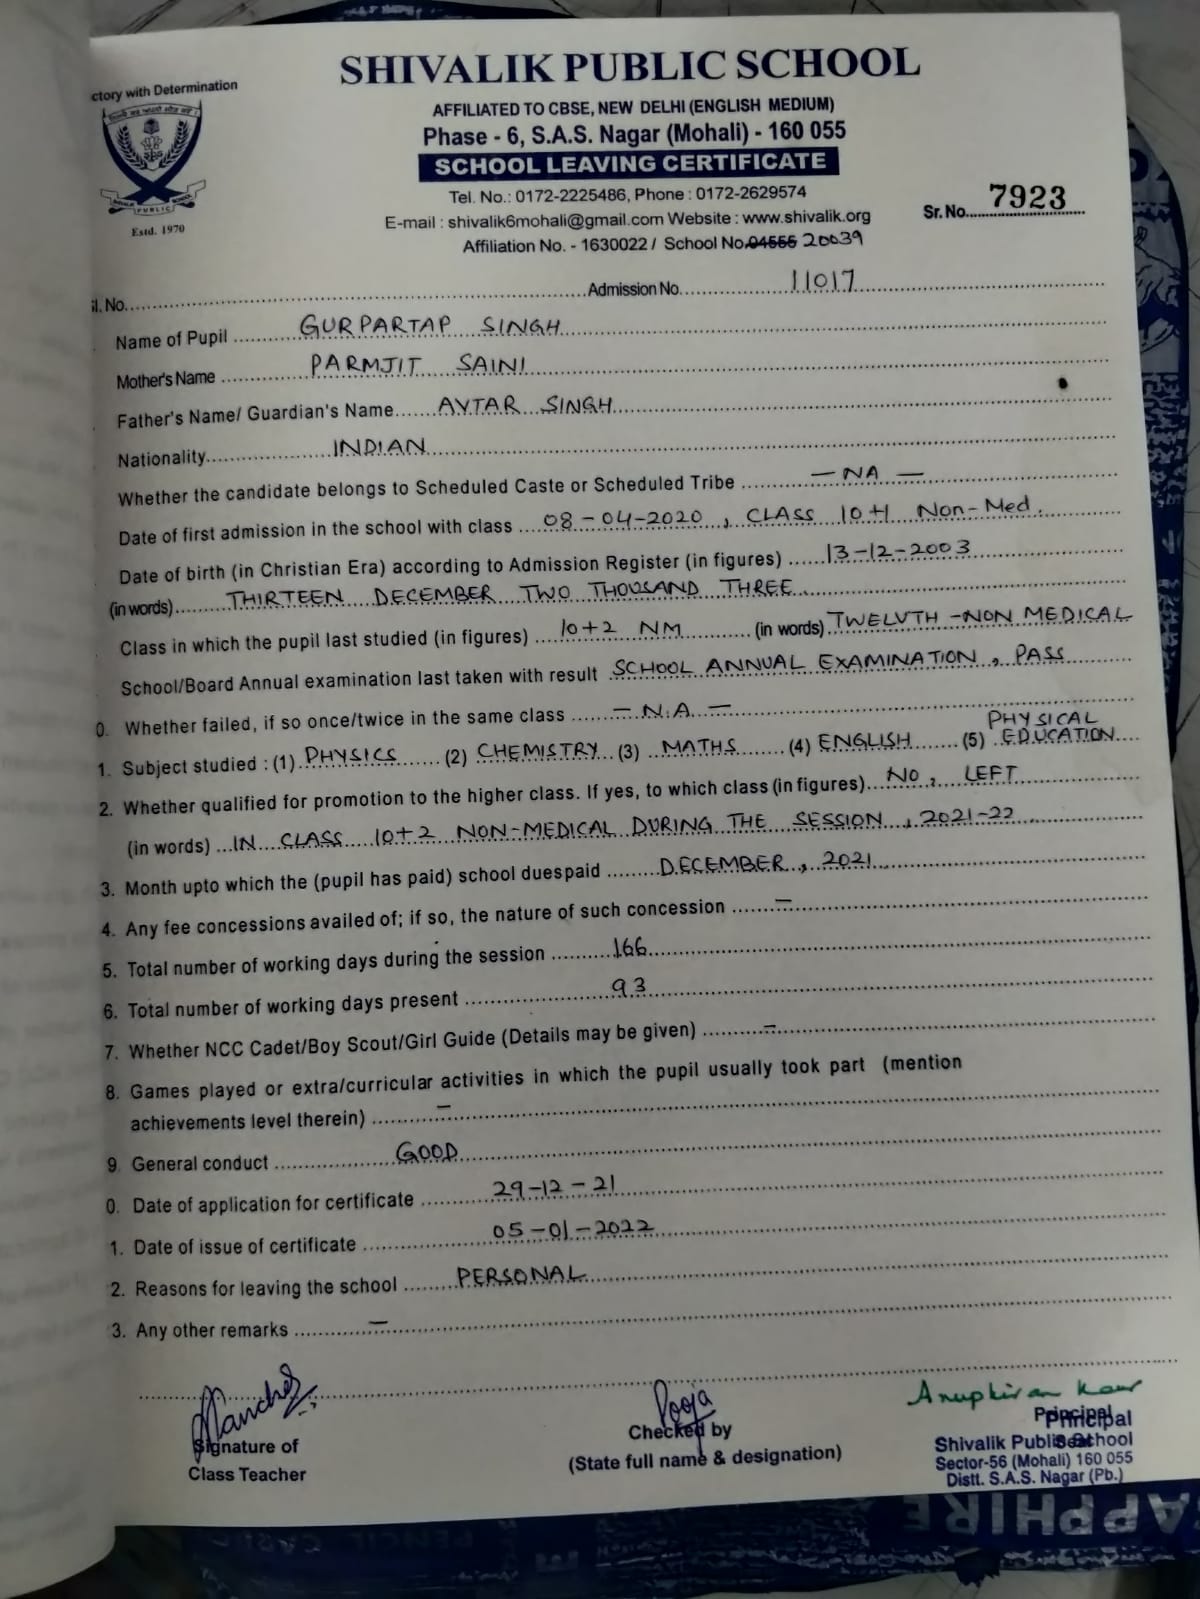 SHIVALIK PUBLIC SCHOOL
ctory with Determination
AFFILIATED TO CBSE, NEW DELHI (ENGLISH MEDIUM)
Phase - 6, S.A.S. Nagar (Mohali) - 160 055
SCHOOL LEAVING CERTIFICATE
Tel. No.: 0172-2225486, Phone : 0172-2629574
E-mail : shivalik6mohali@gmail.com Website : www.shivalik.org
Sr. No. 7923
PUBLIC
Estd. 1970
Affiliation No. - 1630022 / School No. 04555 20039
l. No. Admission No. 11017
Name of Pupil GURPARTAP SINGH
Mother's Name PARMJIT SAINI
Father's Name/ Guardian's Name AVTAR SINGH
Nationality INDIAN
Whether the candidate belongs to Scheduled Caste or Scheduled Tribe - NA -
Date of first admission in the school with class 08-04-2020, CLASS 10+1 Non-Med.
Date of birth (in Christian Era) according to Admission Register (in figures) 13-12-2003
(in words) THIRTEEN DECEMBER TWO THOUSAND THREE
Class in which the pupil last studied (in figures) 10+2 NM (in words) TWELVTH -NON MEDICAL
School/Board Annual examination last taken with result SCHOOL ANNUAL EXAMINATION, PASS
0. Whether failed, if so once/twice in the same class - N.A -
1. Subject studied : (1) PHYSICS (2) CHEMISTRY (3) MATHS (4) ENGLISH (5) PHYSICAL EDUCATION
2. Whether qualified for promotion to the higher class. If yes, to which class (in figures) NO, LEFT
(in words) IN CLASS 10+2 NON-MEDICAL DURING THE SESSION, 2021-22
3. Month upto which the (pupil has paid) school duespaid DECEMBER, 2021
4. Any fee concessions availed of; if so, the nature of such concession -
5. Total number of working days during the session 166
6. Total number of working days present 93
7. Whether NCC Cadet/Boy Scout/Girl Guide (Details may be given) -
8. Games played or extra/curricular activities in which the pupil usually took part (mention
achievements level therein) -
9. General conduct GOOD
0. Date of application for certificate 29-12-21
1. Date of issue of certificate 05-01-2022
2. Reasons for leaving the school PERSONAL
3. Any other remarks -
Pooja
Anupkiran Kaur
Signature of
Class Teacher
Checked by
(State full name & designation)
Principal
Principal
Seal
Shivalik Public School
Sector-56 (Mohali) 160 055
Distt. S.A.S. Nagar (Pb.)
APPHIRE